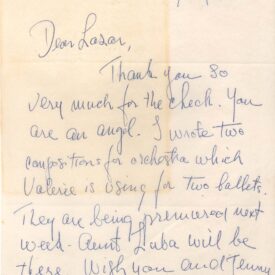 Dear Lazar,
Thank you so
very much for the check. You
are an angel. I wrote two
compositions for orchestra which
Valerie is using for two ballets.
They are being premiered next
week - Aunt Luba will be
there. Wish you and